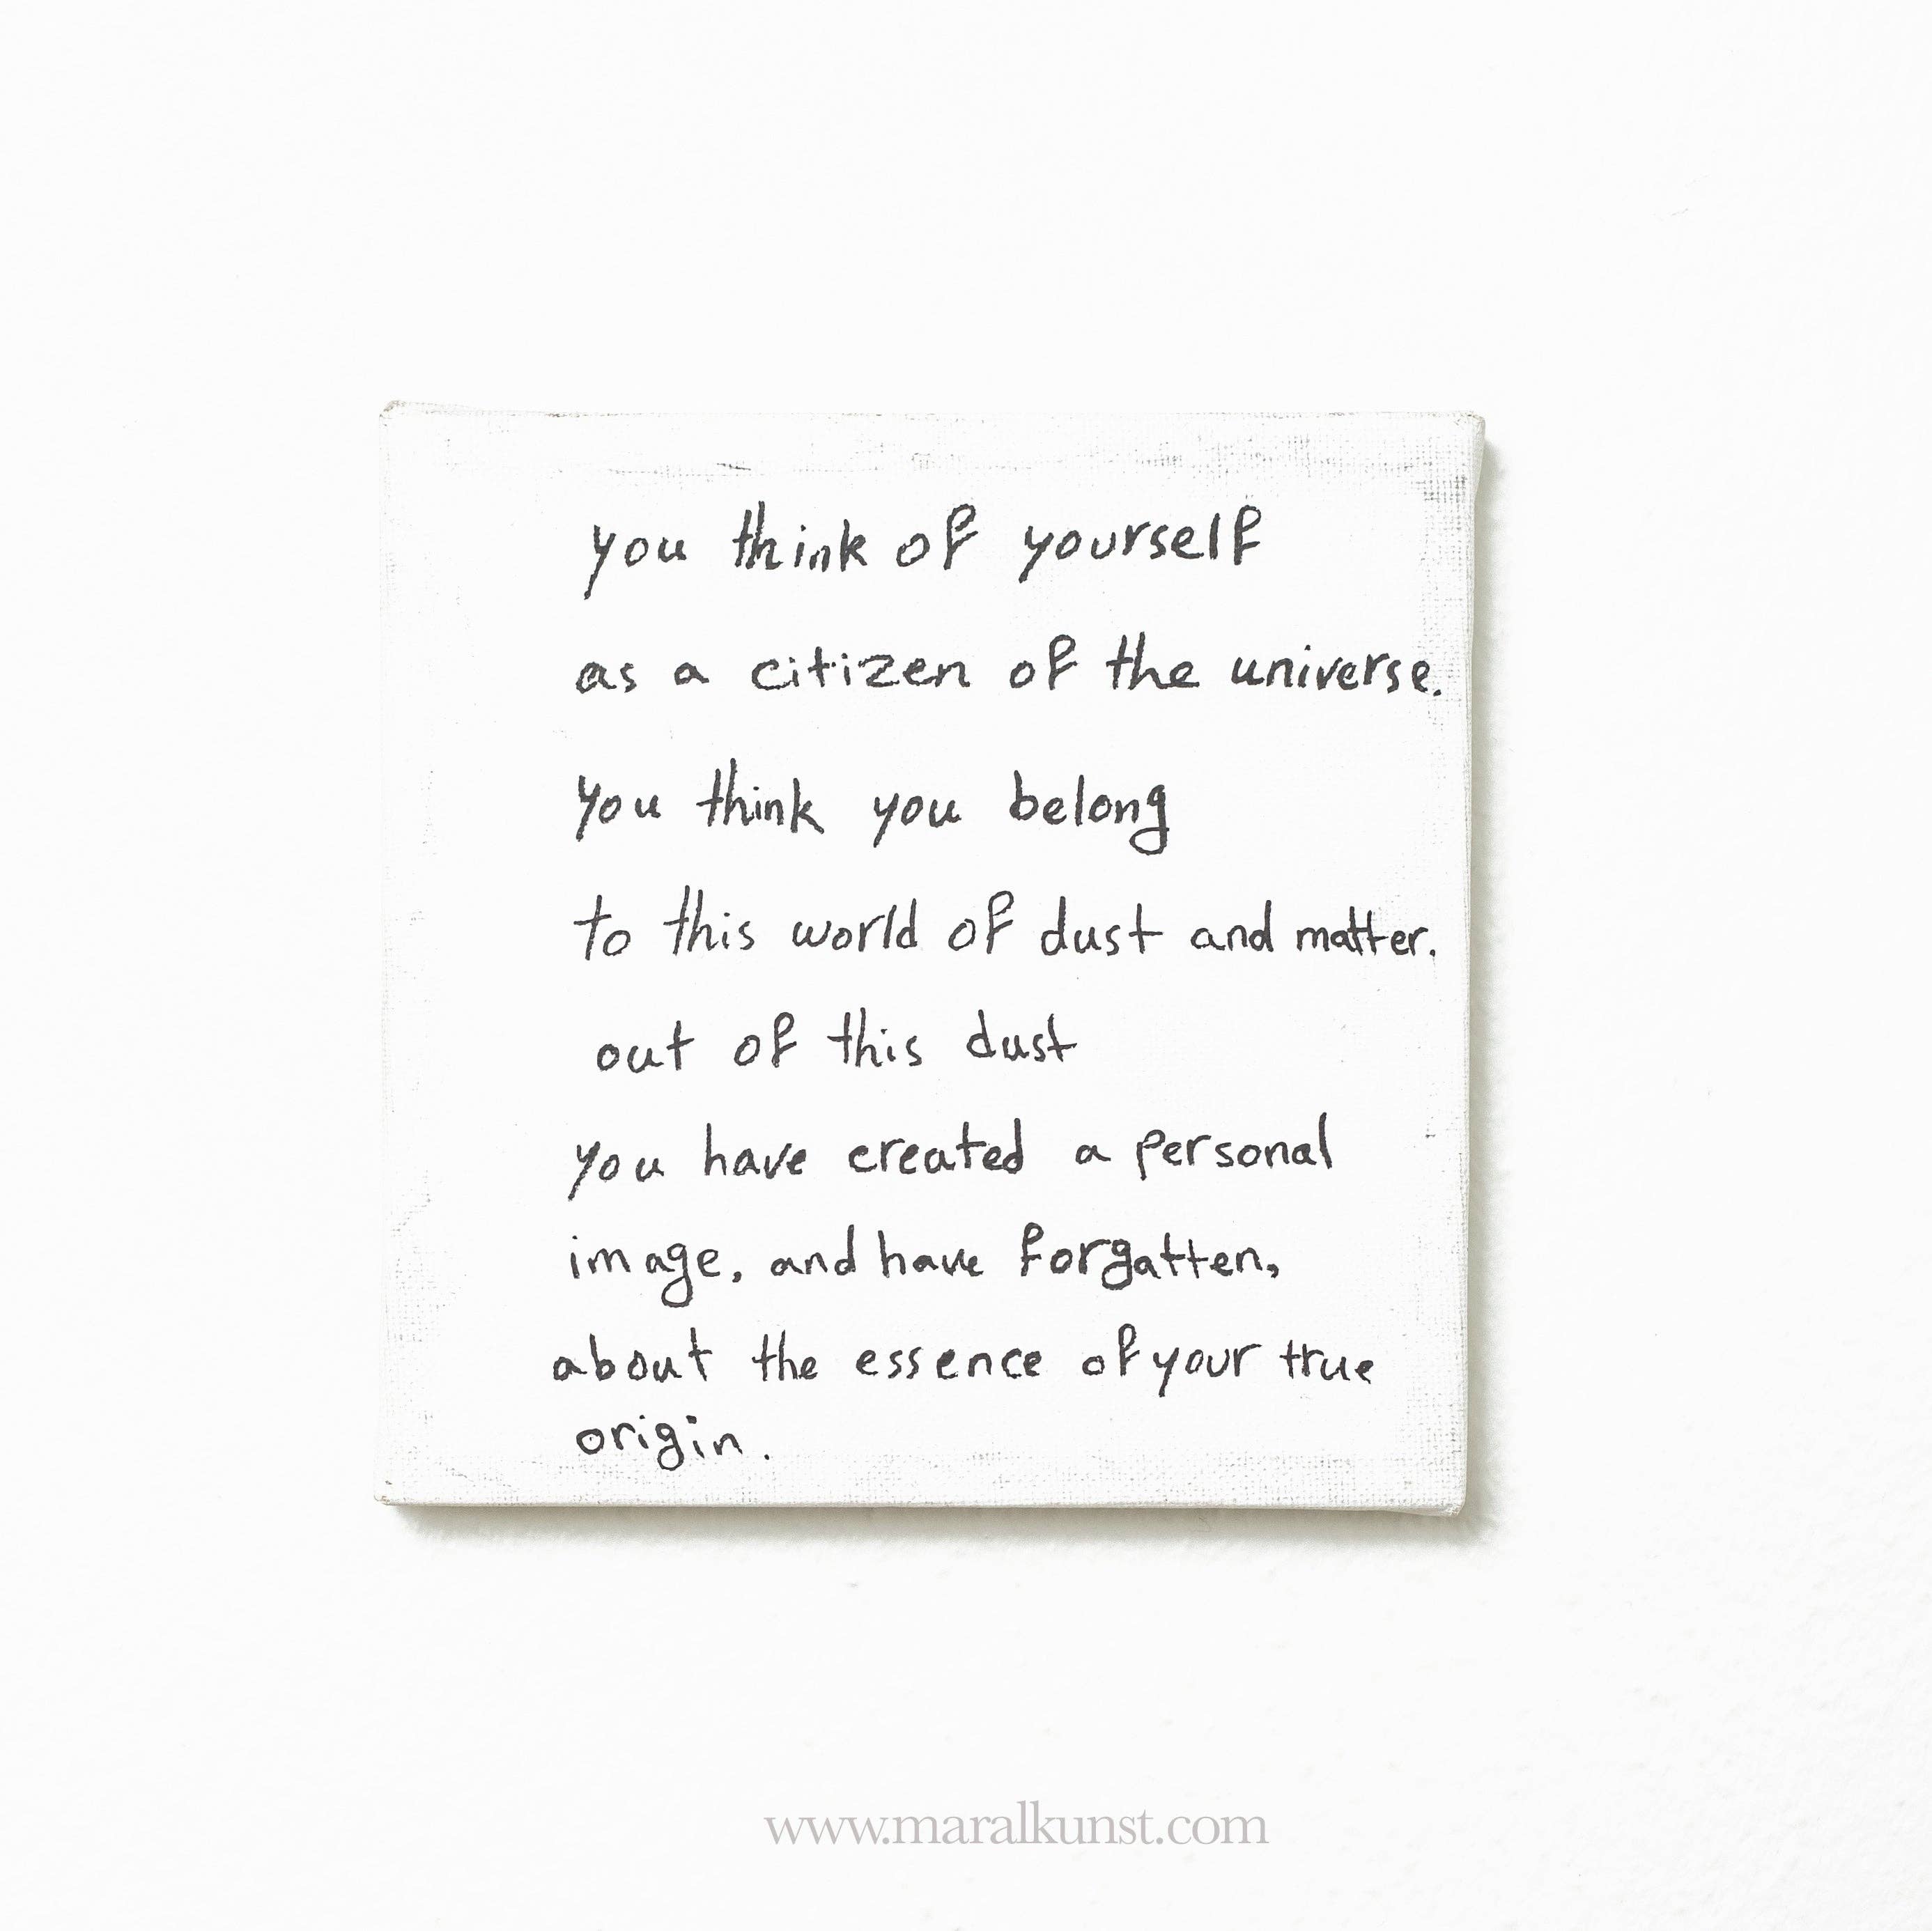 you think of yourself
as a citizen of the universe.
you think you belong
to this world of dust and matter.
out of this dust
you have created a personal
image, and have forgatten,
about the essence of your true
origin.
www.maralkunst.com